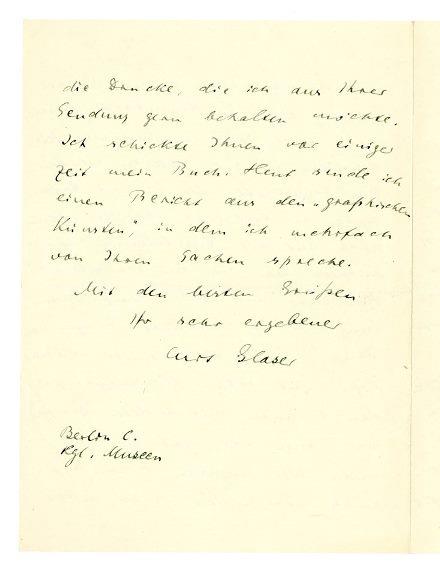 die Drucke, die ich aus Ihrer
Sendung gern behalten möchte.
Ich schickte Ihnen vor einiger
Zeit mein Buch. Heut sende ich
einen Bericht aus den „graphischen
Künsten", in dem ich mehrfach
von Ihren Sachen spreche.
Mit den besten Grüßen
Ihr sehr ergebener
Curt Glaser
Berlin C.
Kgl. Museen